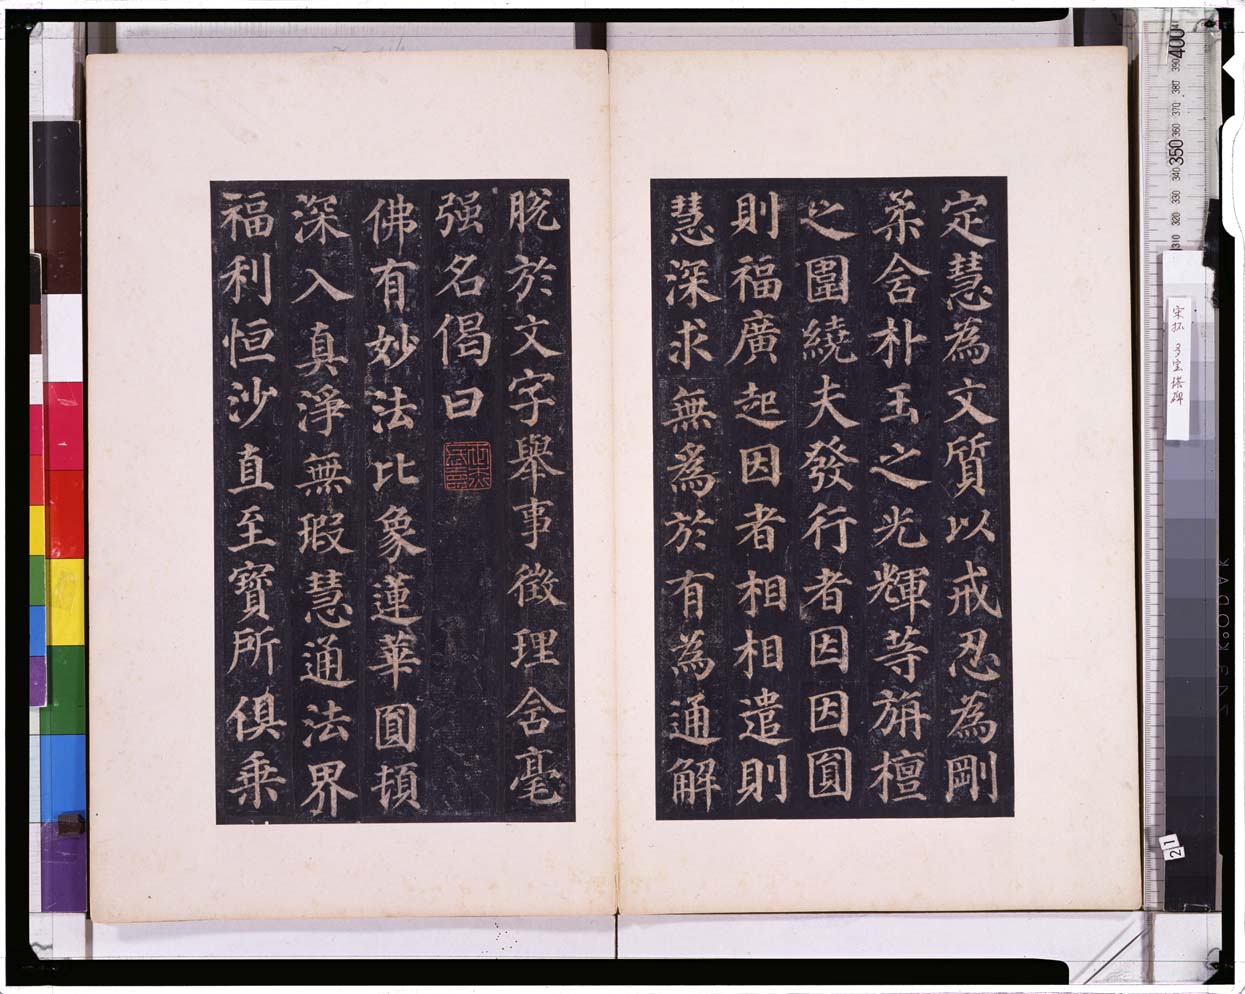 定慧為文質以戒忍為剛
柔含朴玉之光輝等旃檀
之圍繞夫發行者因因圓
則福廣起因者相相遣則
慧深求無為於有為通解
脫於文字舉事徵理含毫
强名偈曰
佛有妙法比象蓮華圓頓
深入真淨無瑕慧通法界
福利恒沙直至寶所俱乗
宋拓 多宝塔碑
21
400
390
380
370
360
350
340
330
320
310
KODAK